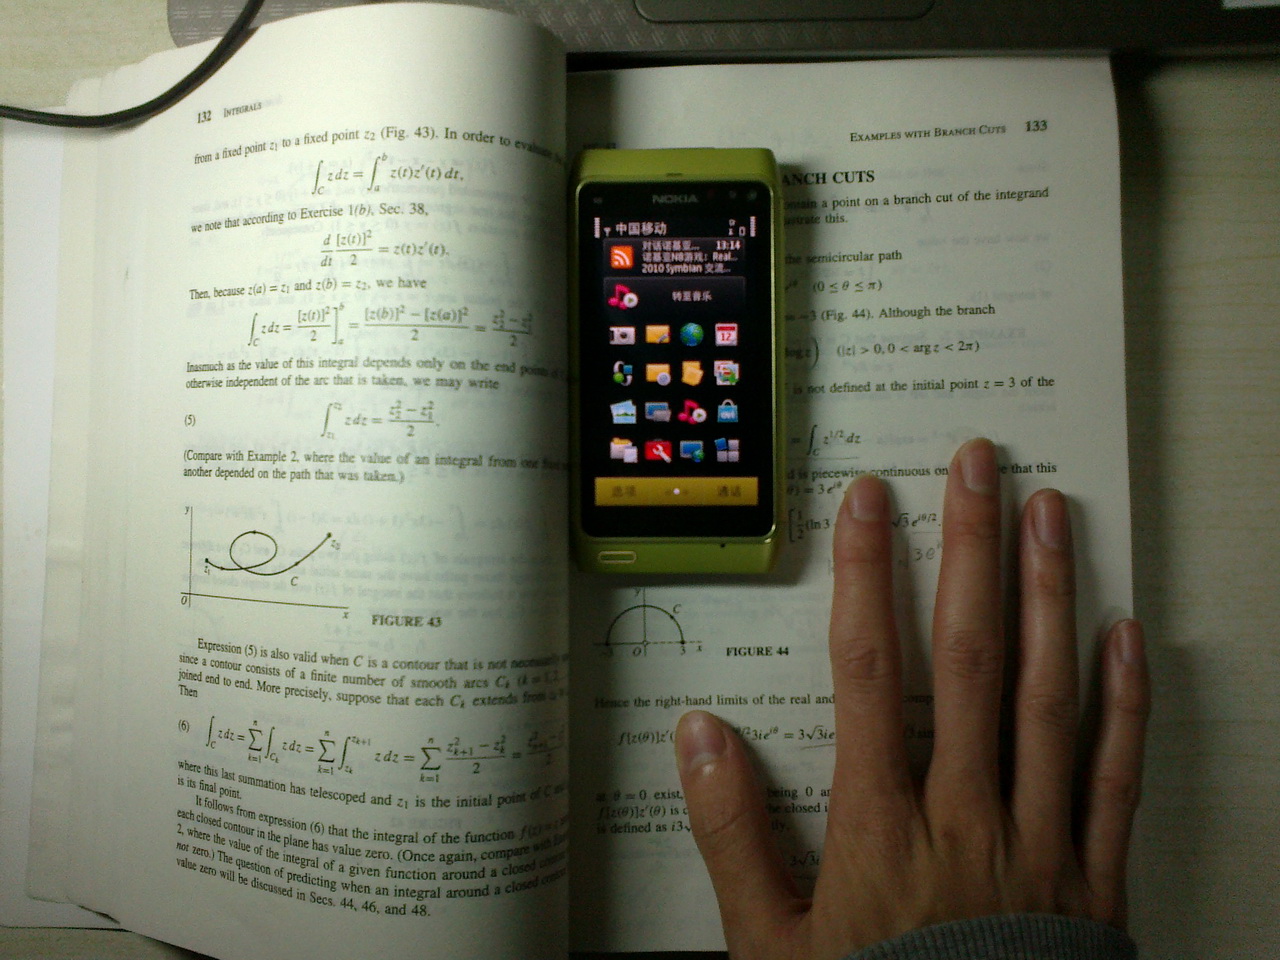 132 INTEGRALS
from a fixed point z₁ to a fixed point z₂ (Fig. 43). In order to
∫_C z dz = ∫_a^b z(t)z′(t) dt,
we note that according to Exercise 1(b), Sec. 38,
d/dt [z(t)]²/2 = z(t)z′(t).
Then, because z(a) = z₁ and z(b) = z₂, we have
∫_C z dz = [z(t)]²/2 ]_a^b = [z(b)]² − [z(a)]²/2 = z₂² − z₁²/2
Inasmuch as the value of this integral depends only on the end
otherwise independent of the arc that is taken, we may write
(5) ∫_{z₁}^{z₂} z dz = z₂² − z₁²/2.
(Compare with Example 2, where the value of an integral from one
another depended on the path that was taken.)
y
z₂
z₁
C
O
x
FIGURE 43
Expression (5) is also valid when C is a contour that is not
since a contour consists of a finite number of smooth arcs C_k (k = 1, 2,
joined end to end. More precisely, suppose that each C_k extends from
Then
(6) ∫_C z dz = Σ_{k=1}^n ∫_{C_k} z dz = Σ_{k=1}^n ∫_{z_k}^{z_{k+1}} z dz = Σ_{k=1}^n z_{k+1}² − z_k²/2 =
where this last summation has telescoped and z₁ is the initial point of C
is its final point.
It follows from expression (6) that the integral of the function f(z) =
each closed contour in the plane has value zero. (Once again, compare with
2, where the value of the integral of a given function around a closed
not zero.) The question of predicting when an integral around a closed
value zero will be discussed in Secs. 44, 46, and 48.
NOKIA
中国移动
对话诺基亚... 13:14
诺基亚N8游戏：Real...
2010 Symbian 交流...
转至音乐
12
ovi
选项 通话
EXAMPLES WITH BRANCH CUTS 133
ANCH CUTS
a point on a branch cut of the integrand
this.
the semicircular path
(0 ≤ θ ≤ π)
= −3 (Fig. 44). Although the branch
log z) (|z| > 0, 0 < arg z < 2π)
is not defined at the initial point z = 3 of the
= ∫_C z^{1/2} dz
is piecewise continuous on that this
θ) = 3e^{iθ}
[1/2(ln 3 √3 e^{iθ/2}.
3e
y
C
−3
O
3
x
FIGURE 44
Hence the right-hand limits of the real and comp
f[z(θ)]z′( 3ie^{iθ} = 3√3ie
at θ = 0 exist, being 0 and
f[z(θ)]z′(θ) is the closed
is defined as i3√
3√3i